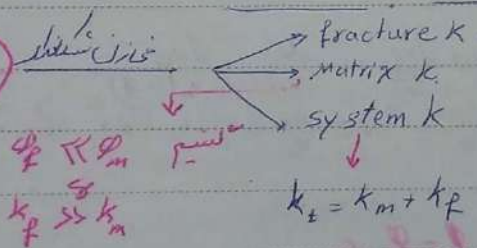 مخازن شکافدار
fracture k
Matrix k
system k
φf << φm
kf >> km
kt = km + kf